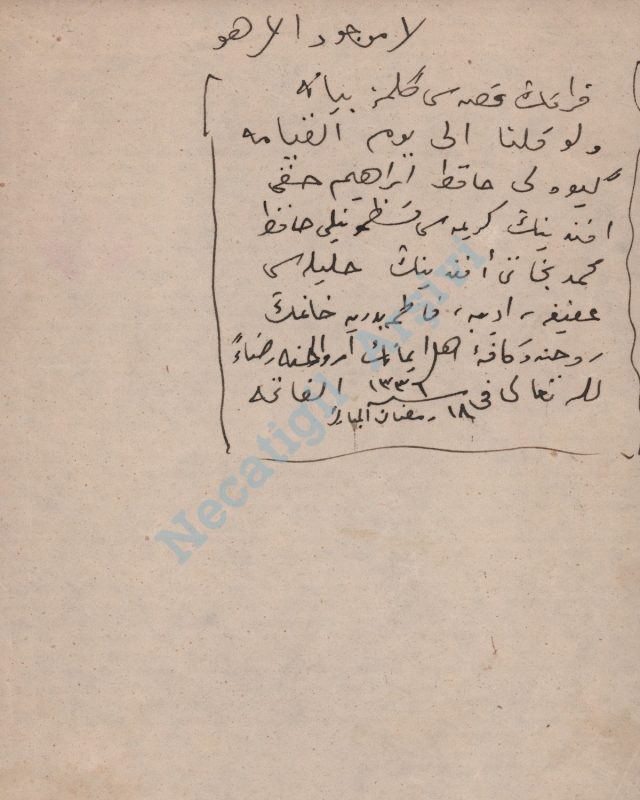 لا موجود الا هو
فراقك غصه سی گلمز بیانه
ولو قلنا الی یوم القیامه
گلیوه لی حافظ ابراهیم حقی
افندینك كریمه سی قسطمونیلی حافظ
محمد نجاتی افندینك حلیله سی
عفیفه، ادیبه، فاطمه بدریه خانمك
روحنه و كافهٔ اهل ایمانك ارواحنه رضاءً
لله تعالی الفاتحه
فی ١٨ رمضان المبارك سنه ١٣٣٦
Necatigil Arşivi